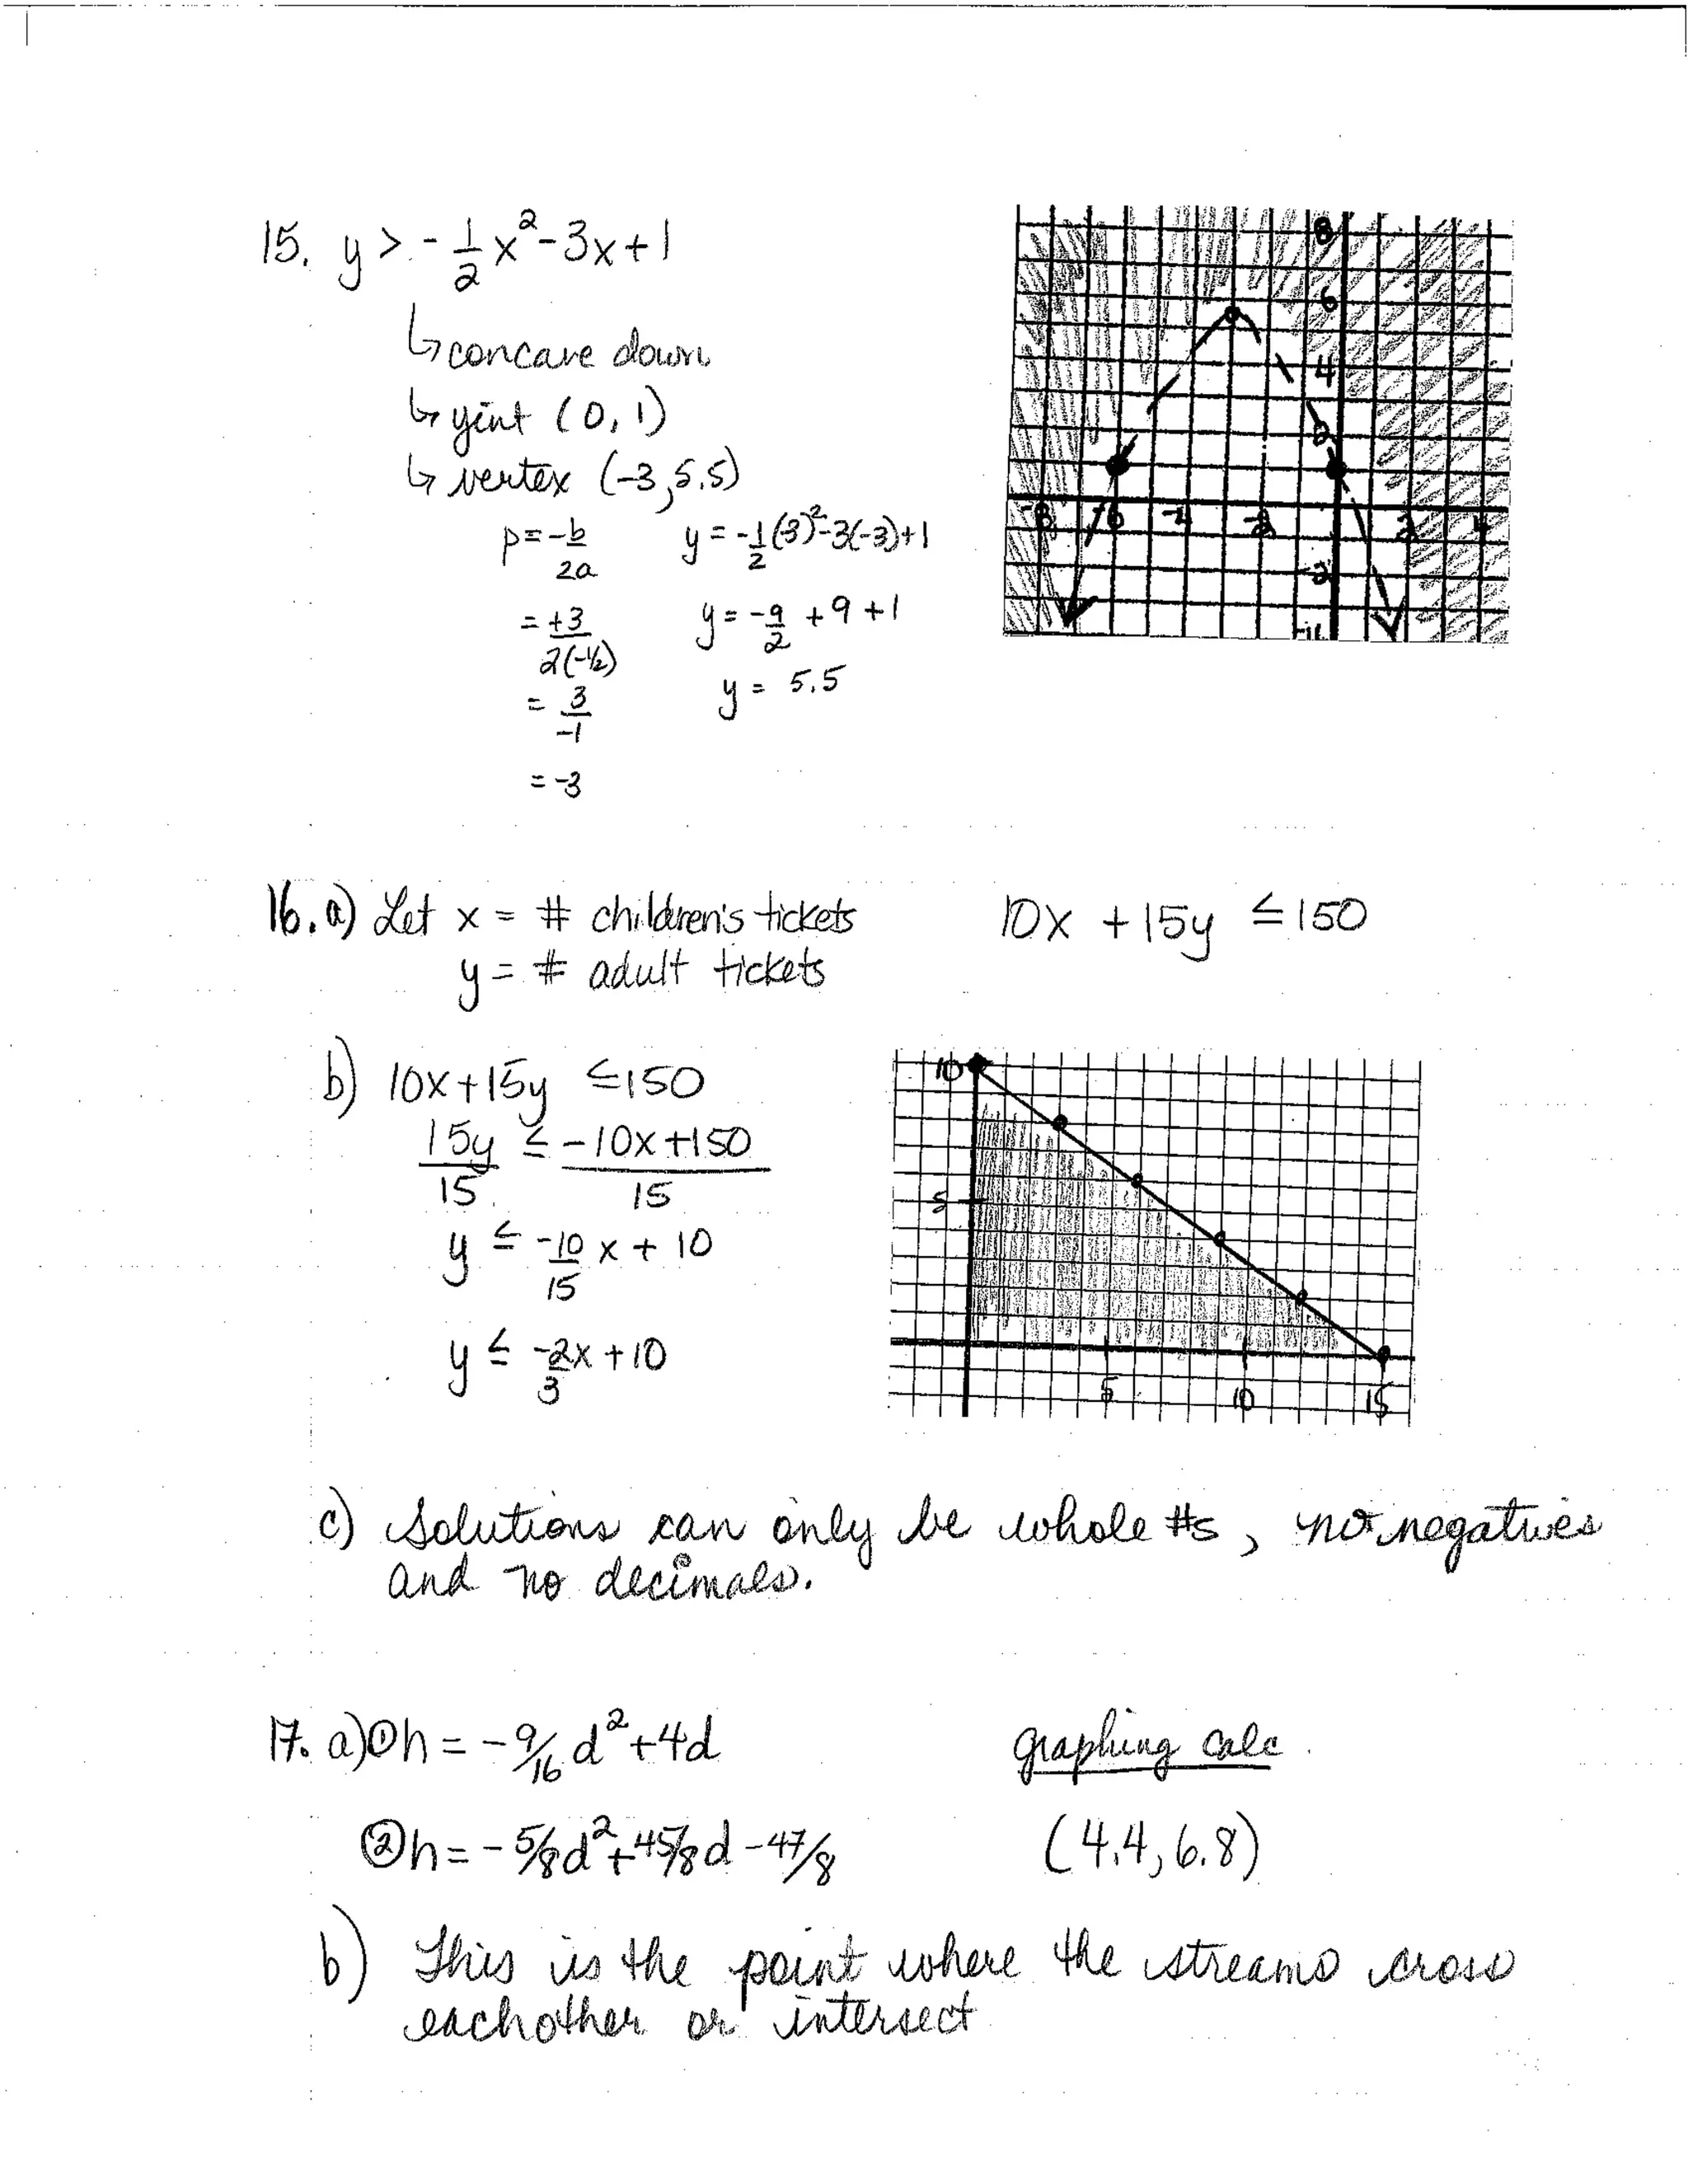 15. y > -1/2 x² - 3x + 1
↳ concave down
↳ yint (0, 1)
↳ vertex (-3, 5.5)
p = -b/2a    y = -1/2(-3)² - 3(-3) + 1
= +3/2(-1/2)    y = -9/2 + 9 + 1
= 3/-1    y = 5.5
= -3
8
6
4
2
-8 -6 -4 -2 2 4
-2
-4
16. a) Let x = # children's tickets    10x + 15y ≤ 150
y = # adult tickets
b) 10x + 15y ≤ 150
15y/15 ≤ -10x + 150/15
y ≤ -10/15 x + 10
y ≤ -2/3 x + 10
10
5
5 10 15
c) Solutions can only be whole #s, no negatives
and no decimals.
17. a) ① h = -9/16 d² + 4d    graphing calc.
② h = -5/8 d² + 45/8 d - 47/8    (4.4, 6.8)
b) This is the point where the streams cross
eachother or intersect